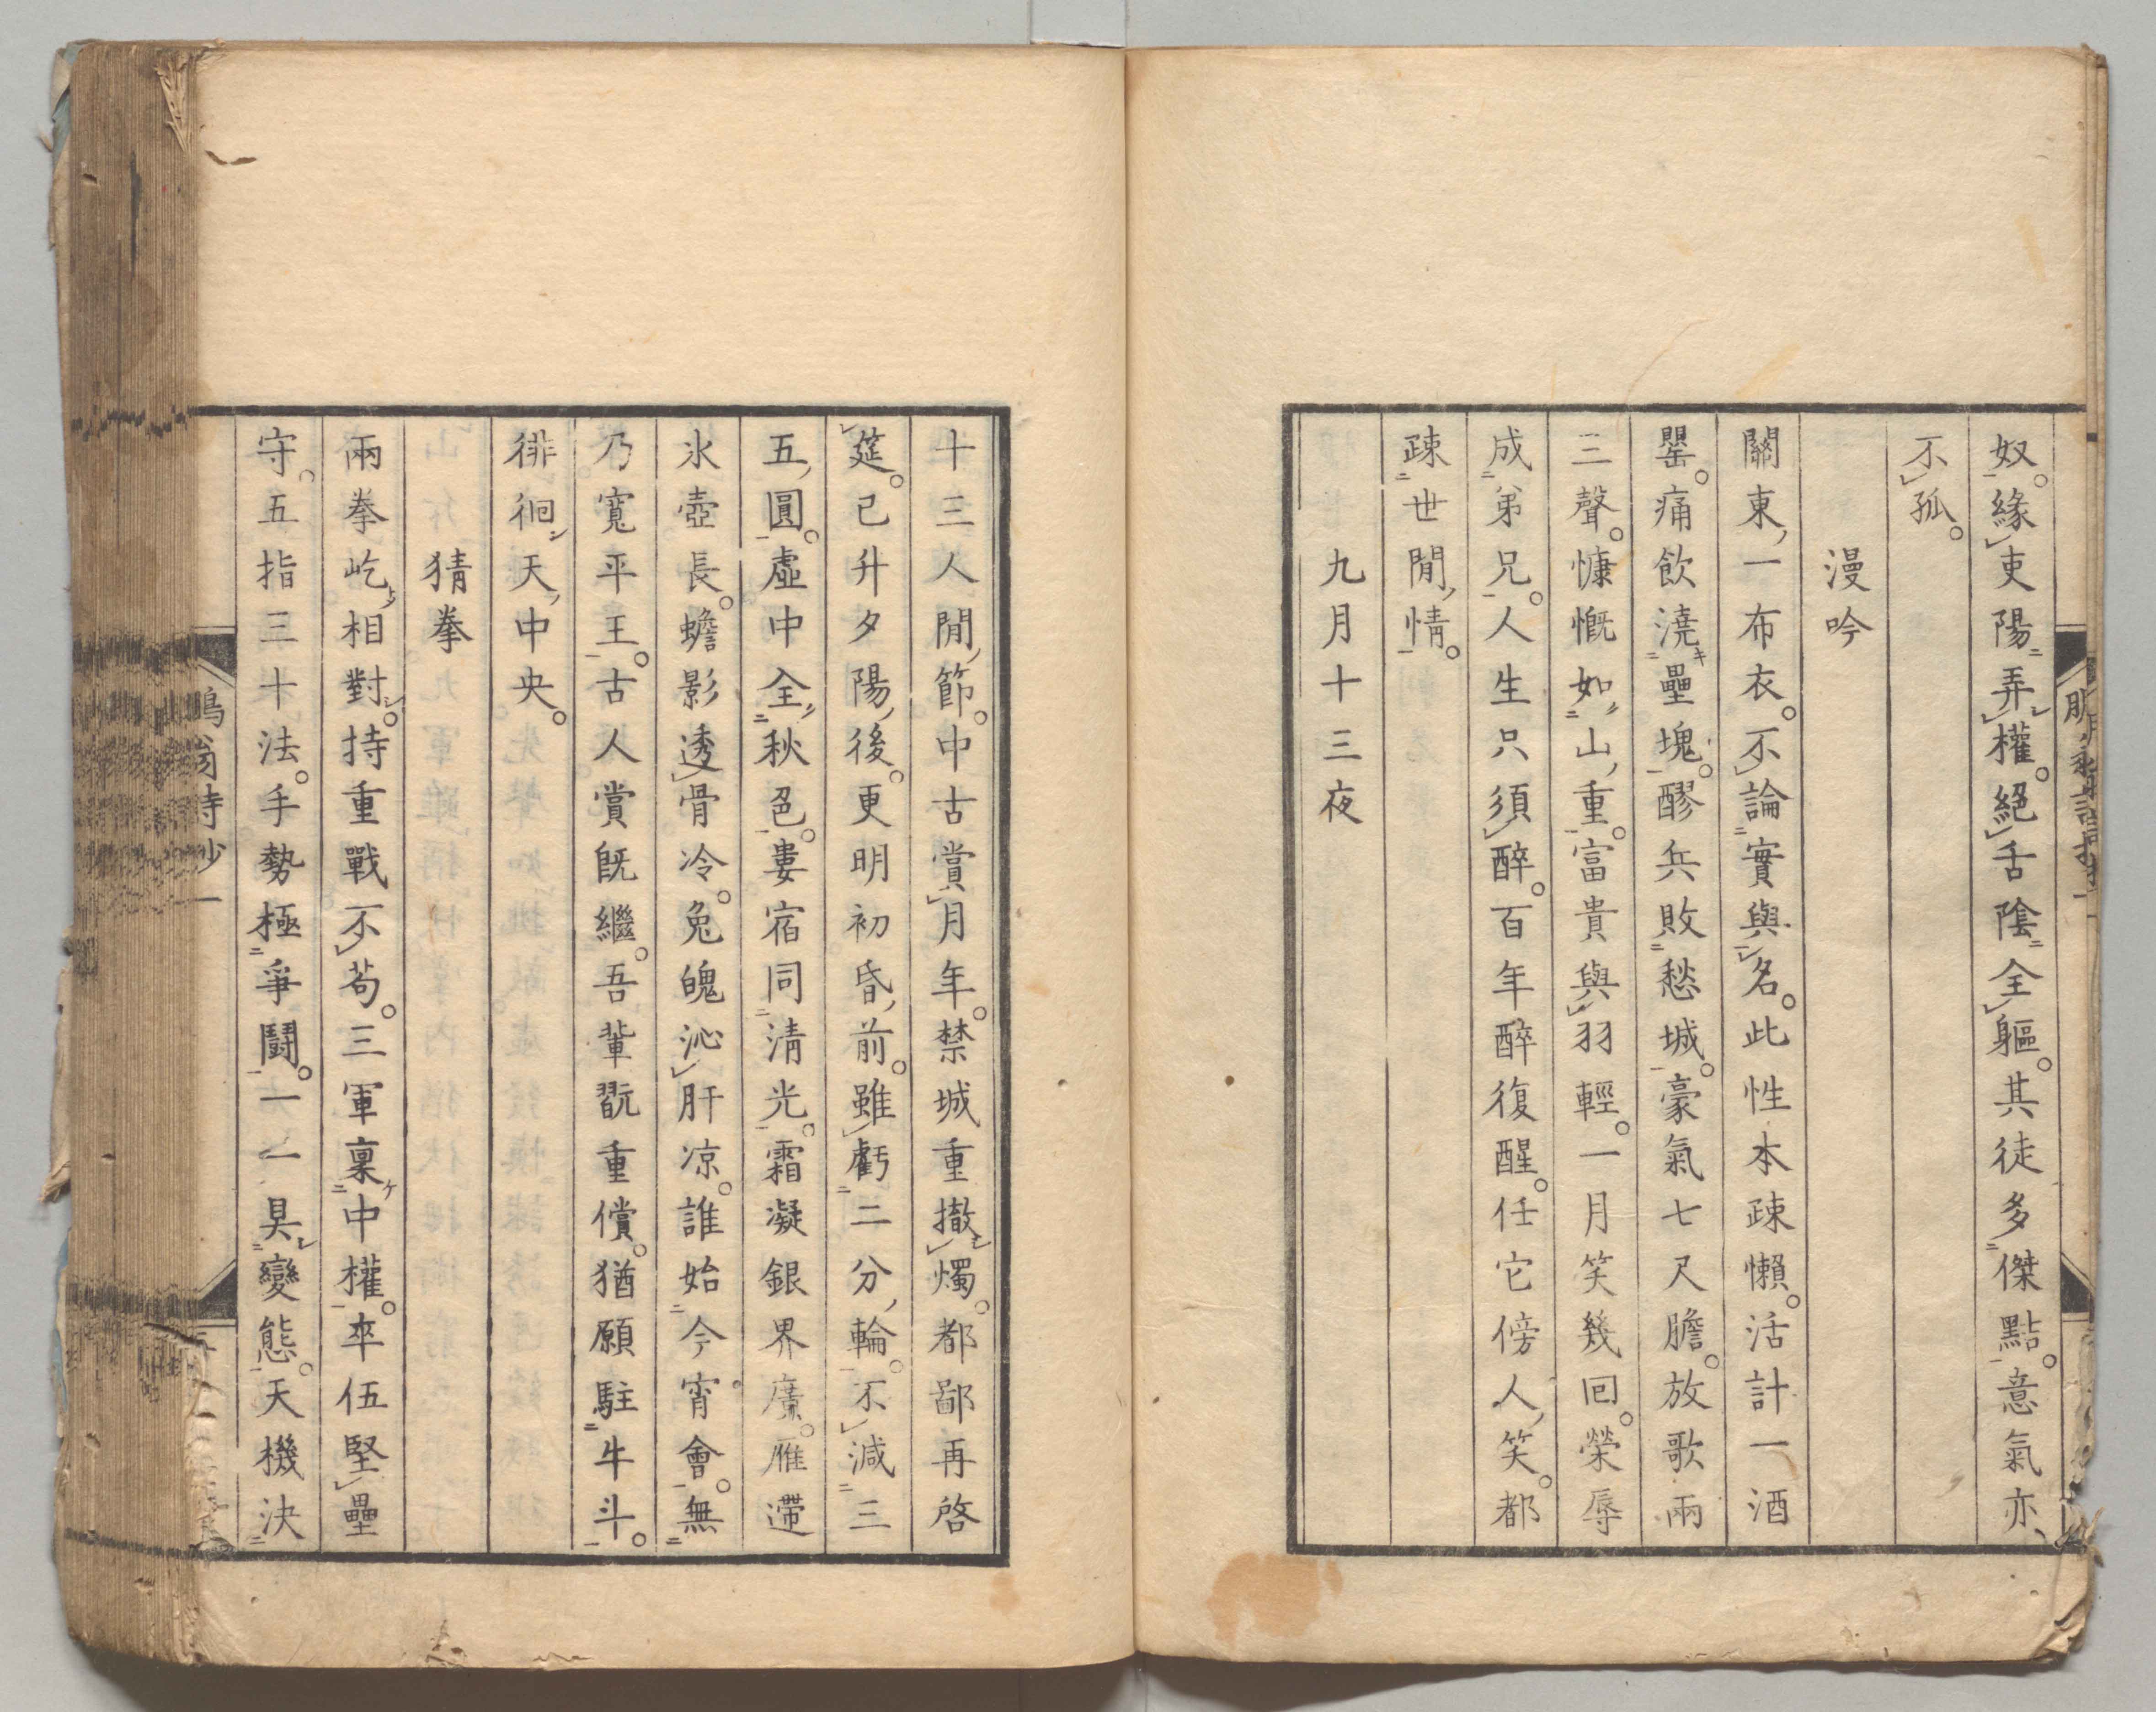 奴。緣吏陽弄權。絕舌陰全軀。其徒多傑點。意氣亦
不孤。
漫吟
關東一布衣。不論實與名。此性本疎懶。活計一酒
罌。痛飲澆壘塊。醪兵敗愁城。豪氣七尺膽。放歌兩
三聲。慷慨如山重。富貴與羽輕。一月笑幾回。榮辱
成弟兄。人生只須醉。百年醉復醒。任它傍人笑。都
疎世閒情。
九月十三夜
十三人閒節。中古賞月年。禁城重撤燭。都鄙再啓
筵。已升夕陽後。更明初昏前。雖虧二分輪。不減三
五圓。虛中全秋色。婁宿同清光。霜凝銀界廣。雁遰
氷壺長。蟾影透骨冷。兔魄沁肝凉。誰始今宵會。無
乃寬平王。古人賞旣繼。吾輩翫重償。猶願駐牛斗。
徘徊天中央。
猜拳
兩拳屹相對。持重戰不苟。三軍稟中權。卒伍堅壘
守。五指三十法。手勢極爭鬪。一一具變態。天機決
翁詩抄一